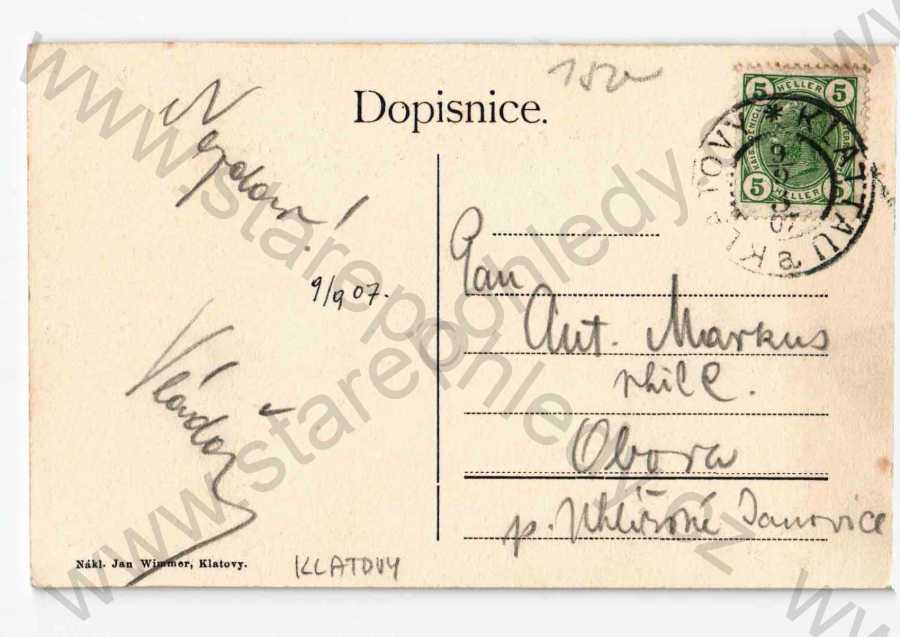 Dopisnice.
Nazdar!
9/9 07.
Nákl. Jan Wimmer, Klatovy.
KLATOVY
150
5 HELLER 5
5 HELLER 5
KLATTAU * KLATOVY
9
9
07
Pan
Ant. Markus
Obora
p. Uhlířské Janovice
www.starepohledy.cz